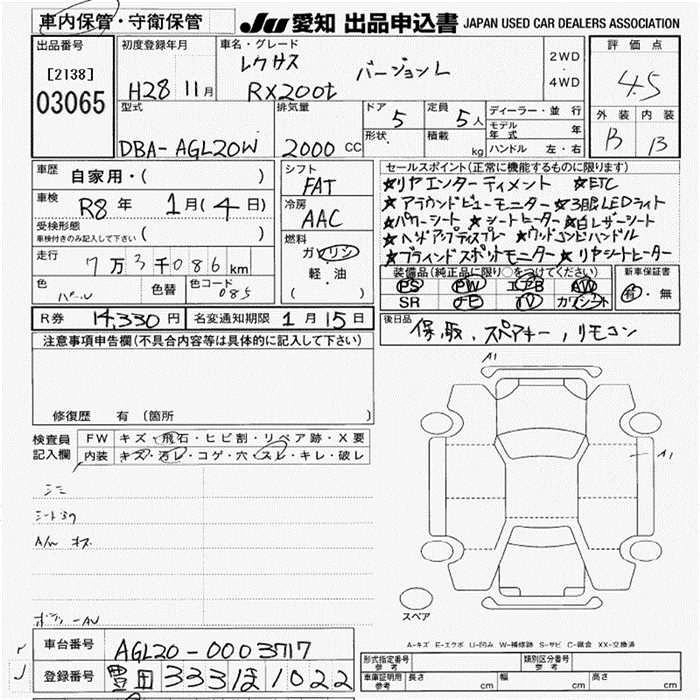 車内保管・守衛保管
JU 愛知 出品申込書 JAPAN USED CAR DEALERS ASSOCIATION
出品番号
[2138]
03065
初度登録年月
H28 11月
車名・グレード
レクサス バージョンL
RX200t
2WD
・
4WD
評価点
4.5
外装 内装
B B
型式
DBA-AGL20W
排気量
2000 CC
ドア 5
形状
定員 5人
積載 kg
ディーラー・並行
モデル年式 年
ハンドル 左・右
車歴
自家用・( )
車検
R8年 1月(4日)
受検形態
車検付きのみ記入して下さい ( )
走行
7万3千086km
色
パール
色替
色コード
085
シフト
FAT
冷房
AAC
燃料
ガソリン
軽・油
( )
セールスポイント(正常に機能するものに限ります)
★リヤエンターティメント ★ETC
★アラウンドビューモニター ★3眼LEDライト
★パワーシート ★シートヒーター ★白レザーシート
★ヘッドアップディスプレー ★ウッドコンビハンドル
★ブラインドスポットモニター ★リヤシートヒーター
装備品(純正品に限り○をつけてください)
PS PW エアB AW
SR ナビ TV カワシート
新車保証書
有・無
R券 14,330円 名変通知期限 1月15日
後日品
保、取、スペアキー、リモコン
注意事項申告欄(不具合内容等は具体的に記入して下さい)
修復歴 有(箇所 )
検査員記入欄
FW キズ・飛石・ヒビ割・リペア跡・X要
内装 キズ・汚レ・コゲ・穴・スレ・キレ・破レ
A1
A1
スペア
A-キズ E-エクボ U-凹み W-補修跡 S-サビ C-腐食 XX-交換済
車台番号 AGL20-0003717
登録番号 豊田 333 ほ 1022
形式指定番号 参考
類別区分番号 参考
車庫証明用 参考 長さ cm 幅 cm 高さ cm